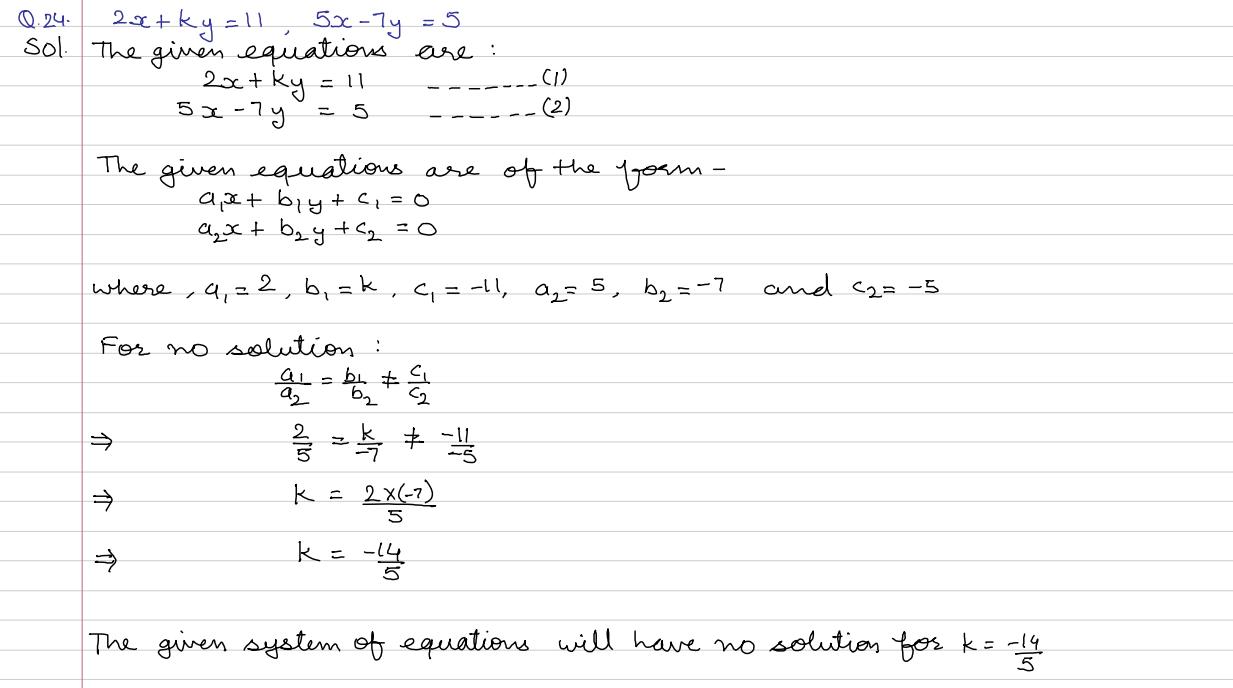 Q.24. 2x + ky = 11 , 5x - 7y = 5
Sol. The given equations are :
2x + ky = 11 -------(1)
5x - 7y = 5 ------(2)
The given equations are of the form -
a₁x + b₁y + c₁ = 0
a₂x + b₂y + c₂ = 0
where , a₁ = 2 , b₁ = k , c₁ = -11, a₂ = 5 , b₂ = -7 and c₂ = -5
For no solution :
a₁/a₂ = b₁/b₂ ≠ c₁/c₂
⇒ 2/5 = k/-7 ≠ -11/-5
⇒ k = 2×(-7)/5
⇒ k = -14/5
The given system of equations will have no solution for k = -14/5